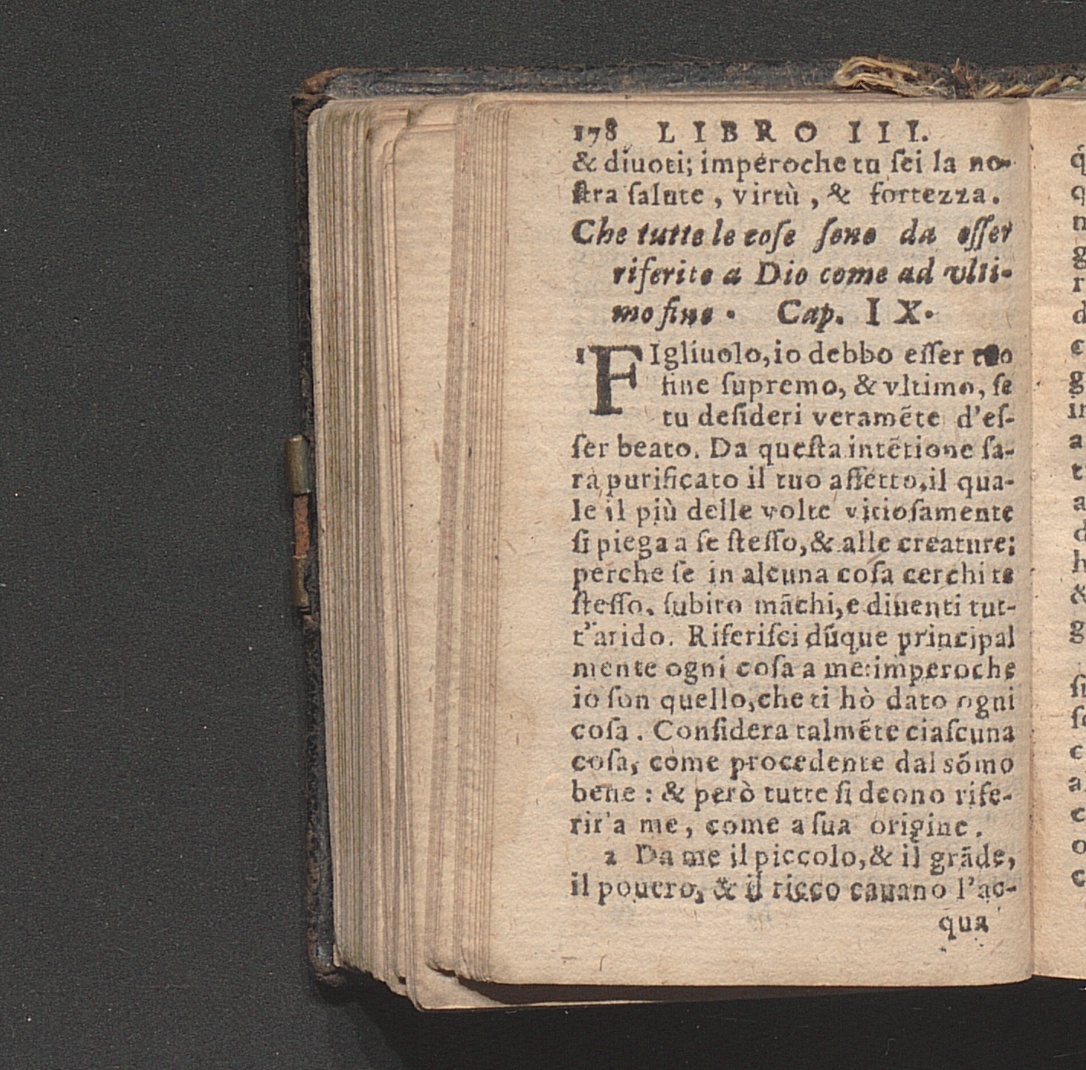 178 LIBRO III.
& diuoti; imperoche tu ſei la no-
ſtra ſalute, virtù, & fortezza.
Che tutte le coſe ſono da eſſer
riferite a Dio come ad vlti-
mo fine. Cap. IX.
1 FIgliuolo, io debbo eſſer tuo
fine ſupremo, & vltimo, ſe
tu deſideri veramẽte d'eſ-
ſer beato. Da queſta intẽtione ſa-
rà purificato il tuo affetto, il qua-
le il più delle volte vitioſamente
ſi piega a ſe ſteſſo, & alle creature;
perche ſe in alcuna coſa cerchi te
ſteſſo, ſubito mãchi, e diuenti tut-
t'arido. Riferiſci dũque principal
mente ogni coſa a me: imperoche
io ſon quello, che ti hò dato ogni
coſa. Conſidera talmẽte ciaſcuna
coſa, come procedente dal sõmo
bene: & però tutte ſi deono rife-
rir'a me, come a ſua origine.
2 Da me il piccolo, & il grãde,
il pouero, & il ricco cauano l'ac-
qua